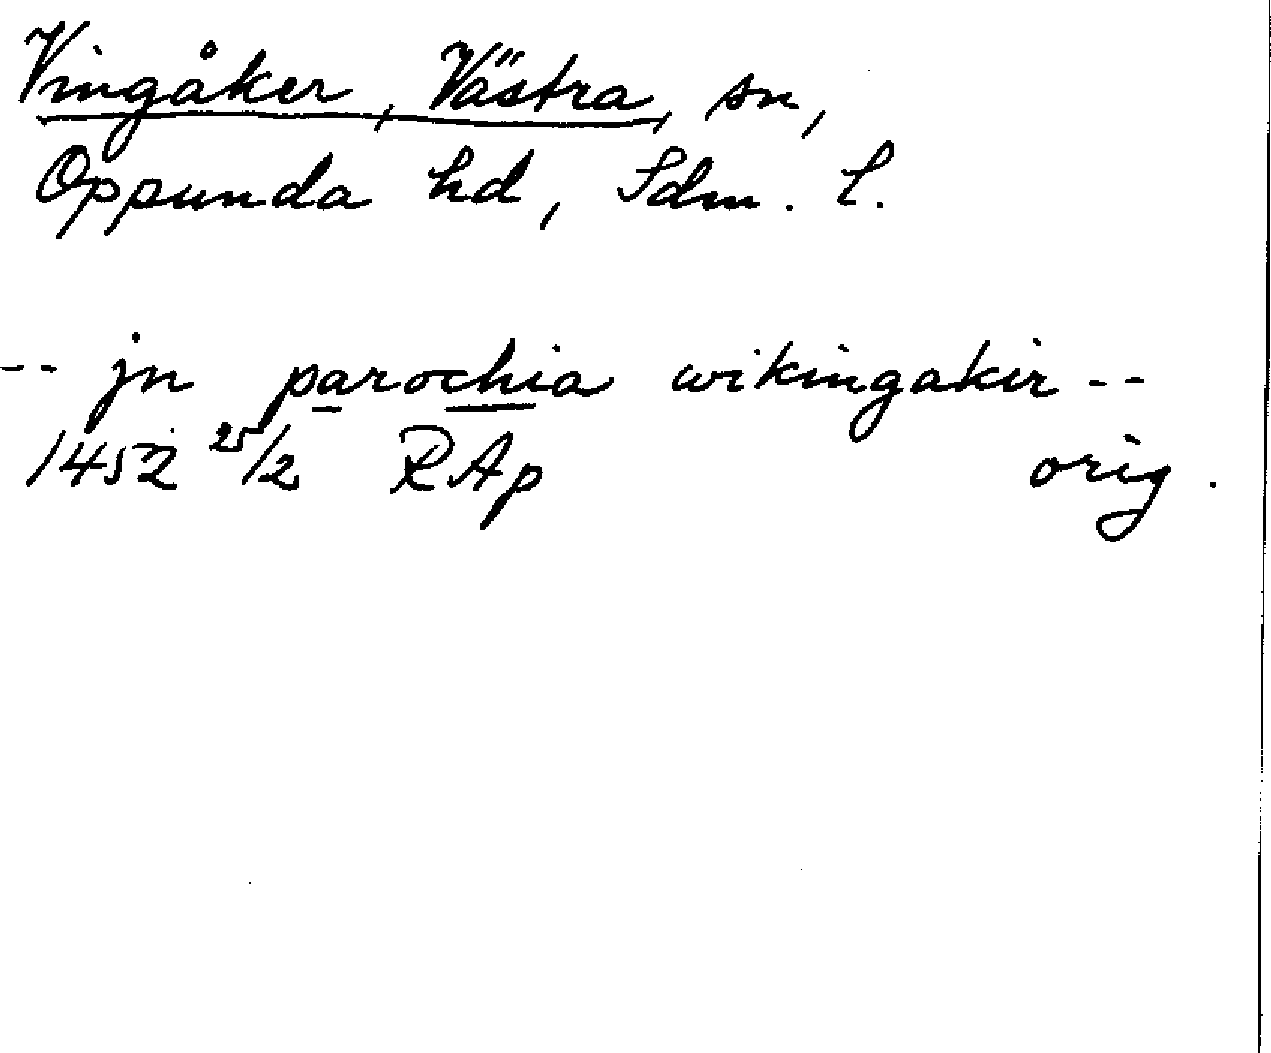 Vingåker, Västra, sn,
Oppunda hd, Sdm. l.
-- jn parochia wikingakir --
1452 25/2 RAp orig.